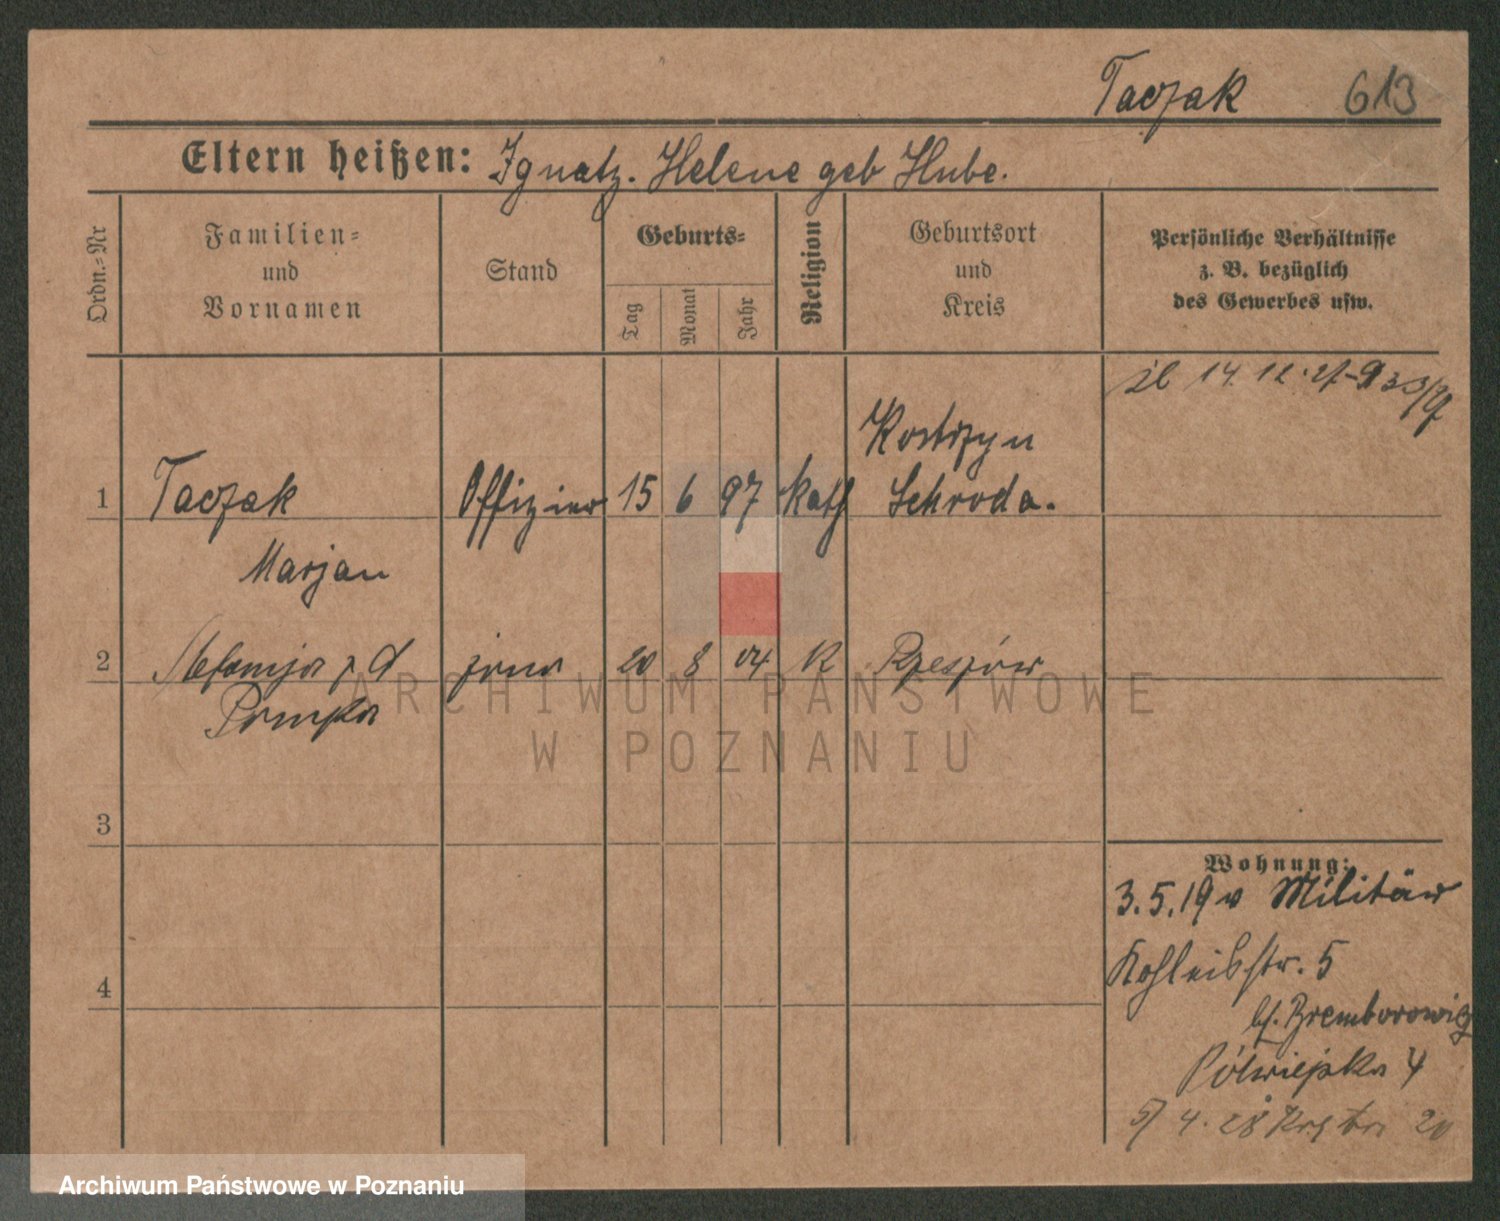 Taczak 613
Eltern heißen: Ignatz. Helene geb Hube.
Ordn.=Nr
Familien=
und
Vornamen
Stand
Geburts=
Tag
Monat
Jahr
Religion
Geburtsort
und
Kreis
Persönliche Verhältnisse
z. B. bezüglich
des Gewerbes usw.
śl 14. 12. 27
1 Taczak Offizier 15 6 97 kath Kostrzyn
Schroda.
Marjan
2 Stefanja z d żona 20 8 04 K Rzeszów
ARCHIWUM PAŃSTWOWE
W POZNANIU
3
4
Wohnung:
3.5.19 v Militär
Kohleisstr. 5
bf. Bremborowicz
Półwiejska 4
4. 28 20
Archiwum Państwowe w Poznaniu